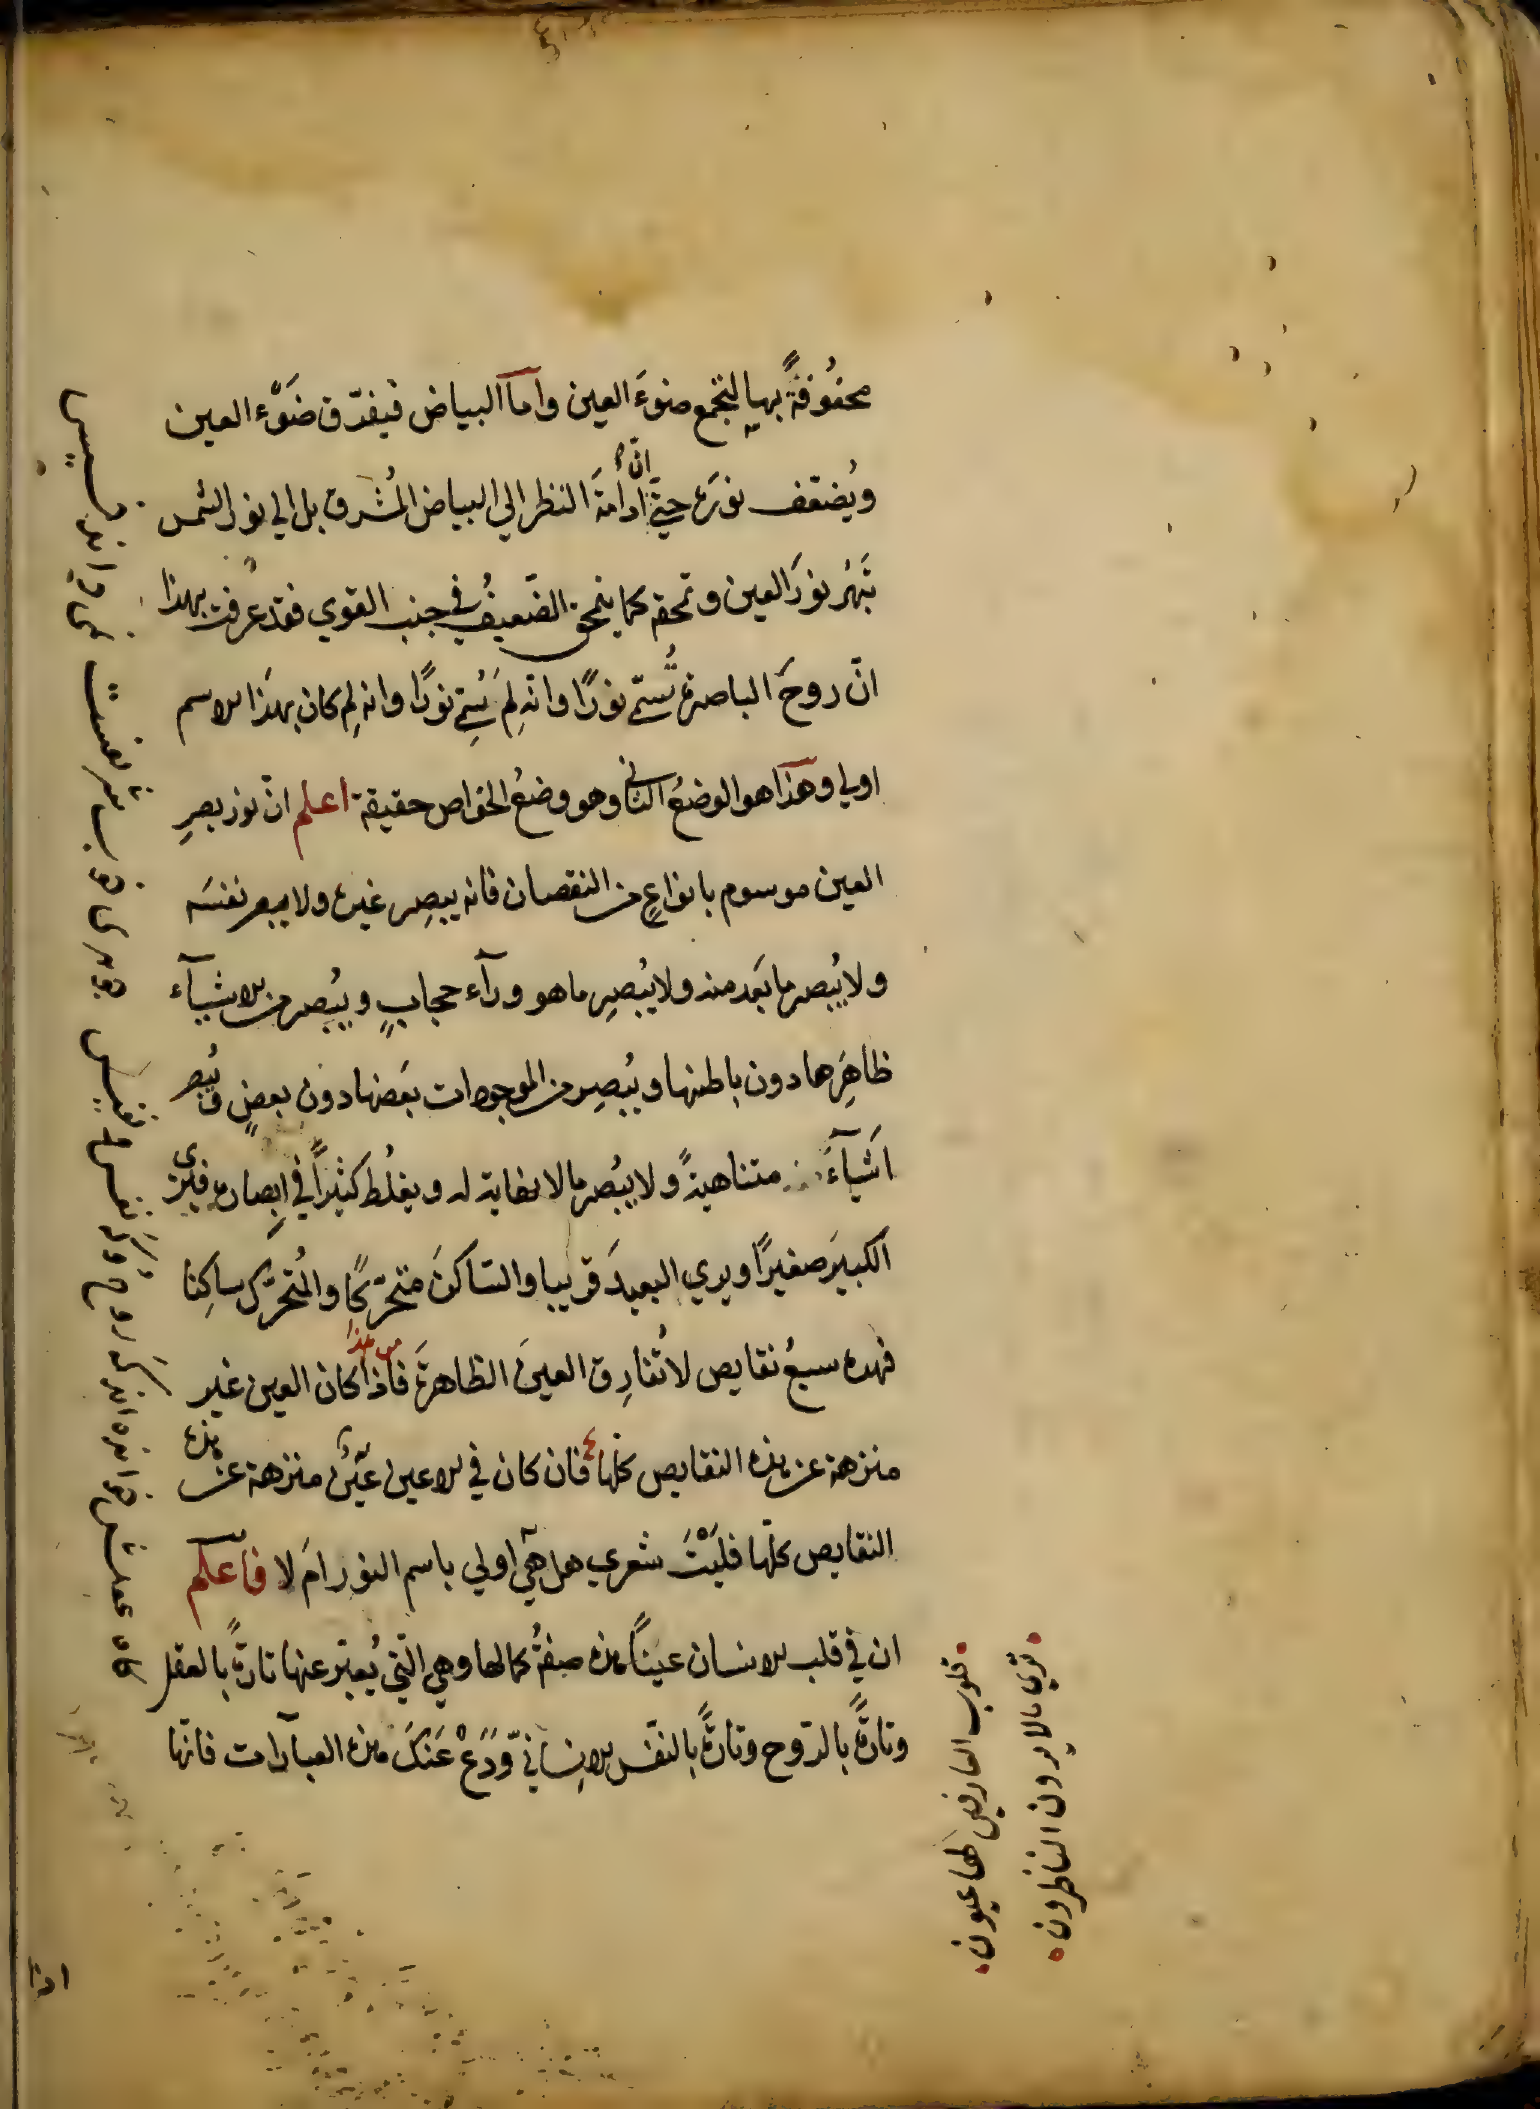 محفُوفةً بها لتجمع ضوءَ العين واما البياض فيفرّق ضَوْء العين
ويُضعّف نورَه حتّي انّ ادامةَ النظر الي البياض المُشرق بل الي نور الشمس
تَبهَر نورَ العين وتمحقه كما ينمحق الضّعيفُ في جنب القوي فقد عُرفت بهذا
انّ روحَ الباصرة تُسمّي نورًا وانّه لِمَ سُمّي نورًا وانه لِم كان بهَذا الاسم
اولي وهذا هو الوضعُ الثاني وهو وضعُ الخواص حقيقة اعلم انّ نور بصرِ
العين موسوم بانواعٍ من النقصان فانه يبصِر غيرَه ولا يبصر نفسَه
ولا يُبصر ما بَعُد منه ولا يُبصِر ما هو ورآء حجابٍ ويُبصر من الاشيآء
ظاهِرَها دون باطنها ويُبصِر من الموجودات بعَضها دون بعضٍ ويُبصر
اَشيآءَ متناهيةً ولا يُبصر ما لا نهاية له ويغلُط كثيراً في ابِصاره فيري
الكبيرَ صغيرًا ويري البعيدَ قريبا والساكنَ متحرّكًا والمُتحرّك ساكِنا
فهذه سبعُ نقايص لا تُفارِق العينَ الظاهرةَ فاذا كان من هذا العين غير
منزهة عن هذه النقايص كلها فان كان في الاعين عَيْنٌ منزهة عن هذه
النقايص كلّها فليْتَ شعري هل هي اولي باسم النور امَ لا فاعلم
ان في قلب الانسان عينًا هذه صفةُ كمالها وهي الّتي يُعبّر عنها تارةً بالعقل
وتارةً بالرّوح وتارةً بالنفس الانِسانيّ ودَعْ عَنكَ هذه العبارات فانّها
قلوب العارفين لها عيون
تري ما لا يرون الناظرون